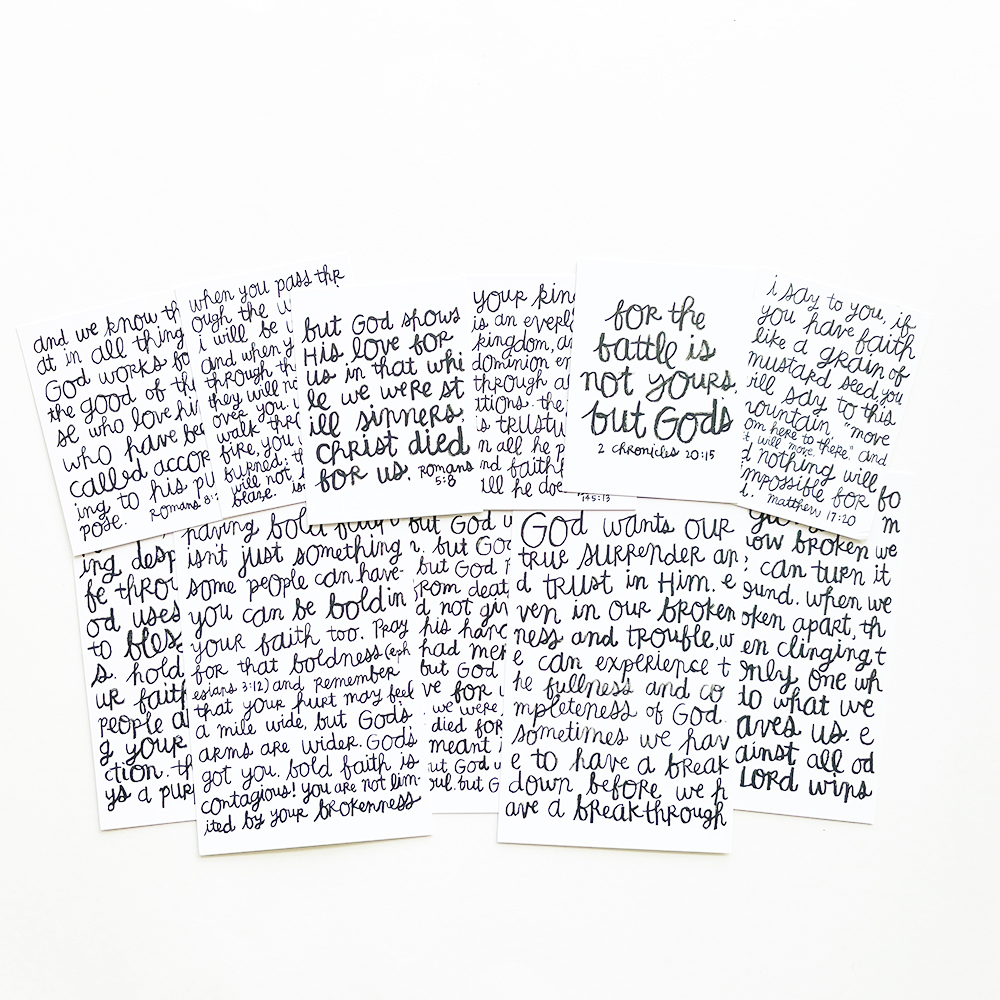 and we know th
at in all thing
God works fo
the good of th
se who love hi
who have be
called accor
ing to his pu
pose. romans 8:
when you pass thr
ough the w
i will be
and when y
through th
they will no
over you.
walk thr
fire, you
burned; th
will not
blaze. is
but God shows
His love for
us in that whi
le we were st
ill sinners
christ died
for us. romans
5:8
your kin
is an everl
kingdom, an
dominion en
through a
tions. the
is trustw
in all he p
nd faithf
ll he doe
145:13
for the
battle is
not yours.
but Gods
2 chronicles 20:15
i say to you, if
you have faith
like a grain of
mustard seed, you
ill say to this
mountain, "move
om here to there," and
t will move. and
d nothing will
impossible for
matthew 17:20
ing desp
be throu
od uses
to bles
s. hold
ur faith
people a
g your
ction. th
ys a purp
having bold faith
isn't just something
some people can have.
you can be bold in
your faith too. Pray
for that boldness (eph
esians 3:12) and remember
that your hurt may feel
a mile wide, but Gods
arms are wider. God's
got you. bold faith is
contagious! you are not lim
ited by your brokenness
but God
. but God
. but God
rom deat
d not giv
his hand
had mer
but God
ve for u
we were
died for
meant
ut God
oul. but G
God wants our
true surrender an
d trust in Him. e
ven in our broken
ness and trouble, w
e can experience t
he fullness and co
mpleteness of God.
sometimes we hav
e to have a break
down before we h
ave a breakthrough
fo
m
ow broken we
; can turn it
ound. when we
oken apart, th
en clinging t
only one wh
to what we
aves us. e
ainst all od
LORD wins